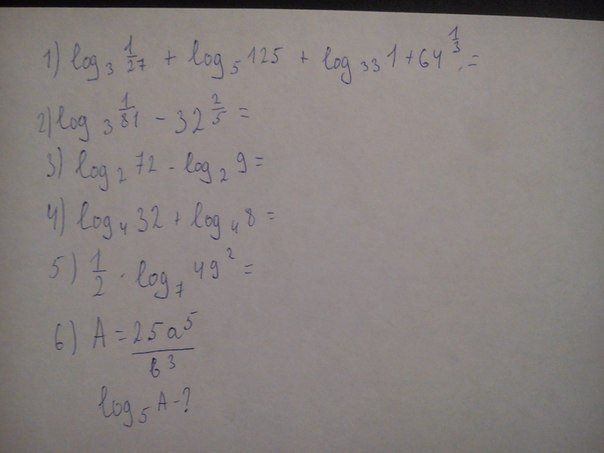 1) log₃ 1/27 + log₅ 125 + log₃₃ 1 + 64^(1/3) =
2) log₃ 1/81 - 32^(2/5) =
3) log₂ 72 - log₂ 9 =
4) log₄ 32 + log₄ 8 =
5) 1/2 · log₇ 49² =
6) A = 25a⁵/b³
log₅ A - ?